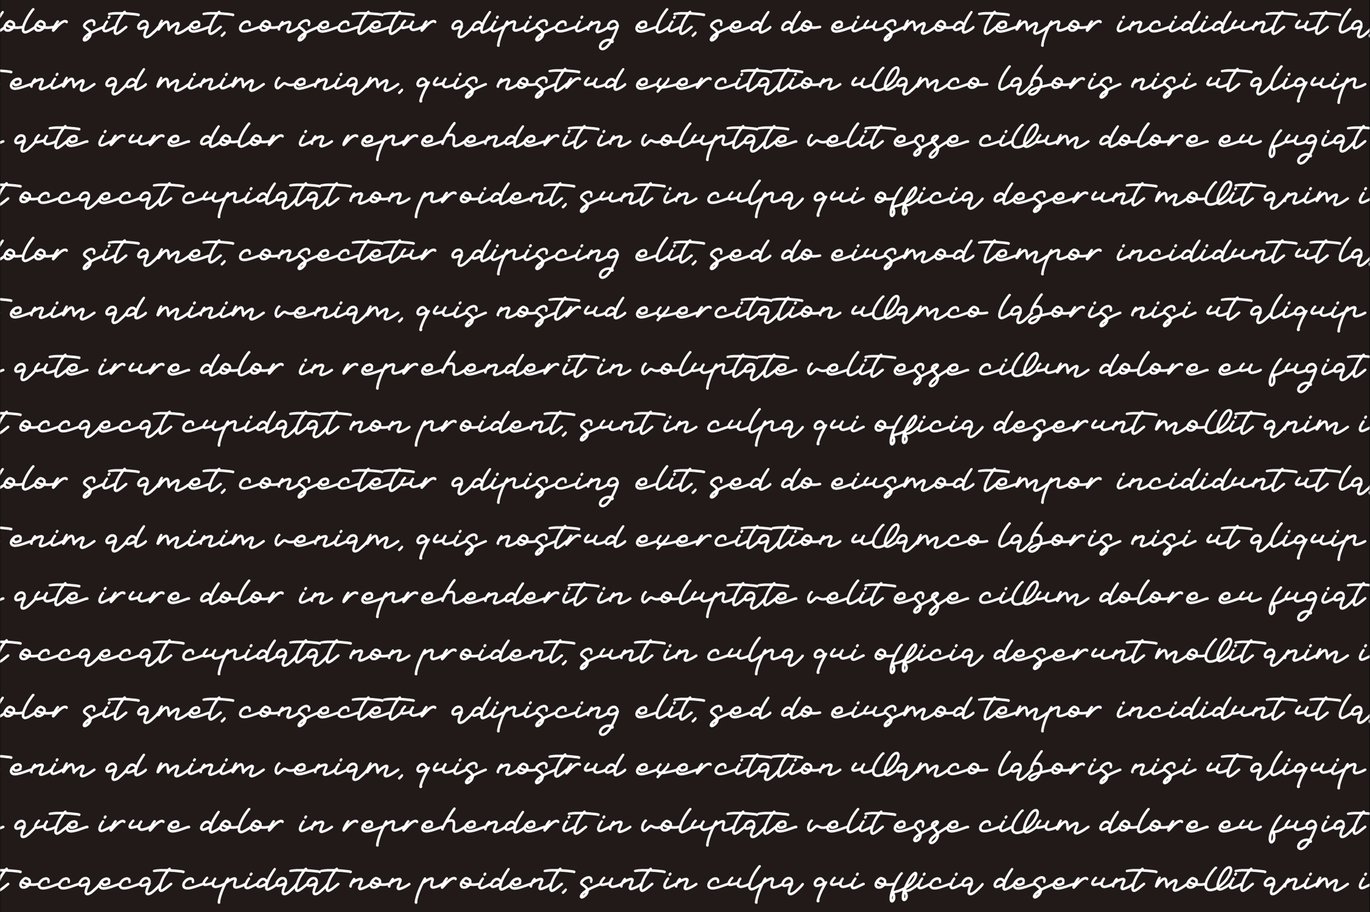 olor sit amet, consectetur adipiscing elit, sed do eiusmod tempor incididunt ut la
enim ad minim veniam, quis nostrud exercitation ullamco laboris nisi ut aliquip
aute irure dolor in reprehenderit in voluptate velit esse cillum dolore eu fugiat
t occaecat cupidatat non proident, sunt in culpa qui officia deserunt mollit anim i
olor sit amet, consectetur adipiscing elit, sed do eiusmod tempor incididunt ut la
enim ad minim veniam, quis nostrud exercitation ullamco laboris nisi ut aliquip
aute irure dolor in reprehenderit in voluptate velit esse cillum dolore eu fugiat
t occaecat cupidatat non proident, sunt in culpa qui officia deserunt mollit anim i
olor sit amet, consectetur adipiscing elit, sed do eiusmod tempor incididunt ut la
enim ad minim veniam, quis nostrud exercitation ullamco laboris nisi ut aliquip
aute irure dolor in reprehenderit in voluptate velit esse cillum dolore eu fugiat
t occaecat cupidatat non proident, sunt in culpa qui officia deserunt mollit anim i
olor sit amet, consectetur adipiscing elit, sed do eiusmod tempor incididunt ut la
enim ad minim veniam, quis nostrud exercitation ullamco laboris nisi ut aliquip
aute irure dolor in reprehenderit in voluptate velit esse cillum dolore eu fugiat
t occaecat cupidatat non proident, sunt in culpa qui officia deserunt mollit anim i